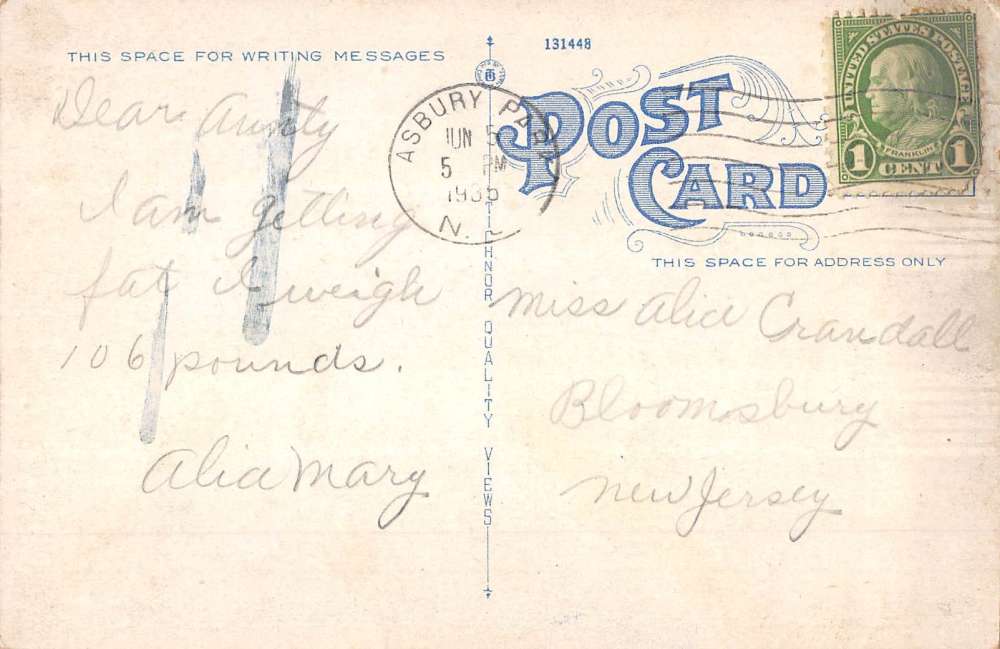 THIS SPACE FOR WRITING MESSAGES
131448
POST
CARD
THIS SPACE FOR ADDRESS ONLY
UNITED STATES POSTAGE
FRANKLIN
1 CENT 1
ASBURY
JUN 5
5 PM
N.
QUALITY VIEWS
Dear Aunty
I am getting
fat I weigh
106 pounds.
Alice Mary
Miss Alice Crandall
Bloomsbury
New Jersey